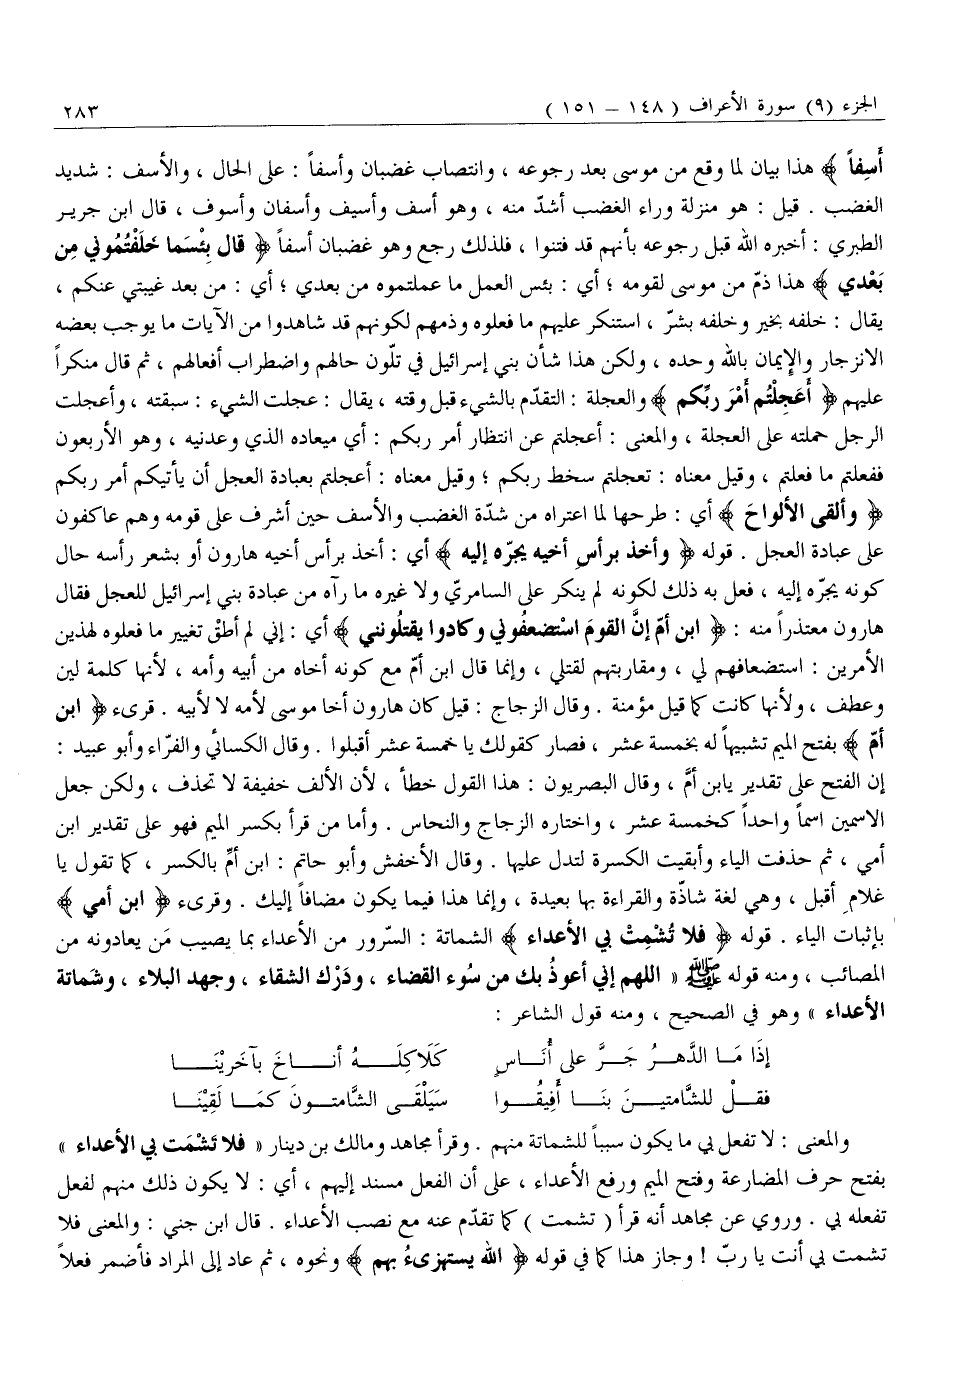 الجزء (٩) سورة الأعراف ( ١٤٨ – ١٥١ )
٢٨٣
أَسِفاً ﴾ هذا بيان لما وقع من موسى بعد رجوعه ، وانتصاب غضبان وأسفاً : على الحال ، والأسف : شديد
الغضب . قيل : هو منزلة وراء الغضب أشدّ منه ، وهو أسف وأسيف وأسفان وأسوف ، قال ابن جرير
الطبري : أخبره الله قبل رجوعه بأنهم قد فتنوا ، فلذلك رجع وهو غضبان أسفاً ﴿ قال بِئْسَما خَلَفْتُمُوني مِن
بَعْدي ﴾ هذا ذمّ من موسى لقومه ؛ أي : بئس العمل ما عملتموه من بعدي ؛ أي : من بعد غيبتي عنكم ،
يقال : خلفه بخير وخلفه بشرّ ، استنكر عليهم ما فعلوه وذمهم لكونهم قد شاهدوا من الآيات ما يوجب بعضه
الانزجار والإِيمان بالله وحده ، ولكن هذا شأن بني إسرائيل في تلّون حالهم واضطراب أفعالهم ، ثم قال منكراً
عليهم ﴿ أَعَجِلْتُم أَمْرَ ربِّكم ﴾ والعجلة : التقدّم بالشيء قبل وقته ، يقال : عجلت الشيء : سبقته ، وأعجلت
الرجل حملته على العجلة ، والمعنى : أعجلتم عن انتظار أمر ربكم : أي ميعاده الذي وعدنيه ، وهو الأربعون
ففعلتم ما فعلتم ، وقيل معناه : تعجلتم سخط ربكم ؛ وقيل معناه : أعجلتم بعبادة العجل أن يأتيكم أمر ربكم
﴿ وألقى الألواحَ ﴾ أي : طرحها لما اعتراه من شدّة الغضب والأسف حين أشرف على قومه وهم عاكفون
على عبادة العجل . قوله ﴿ وأخذ برأسِ أخيه يجرّه إليه ﴾ أي : أخذ برأس أخيه هارون أو بشعر رأسه حال
كونه يجرّه إليه ، فعل به ذلك لكونه لم ينكر على السامريّ ولا غيره ما رآه من عبادة بني إسرائيل للعجل فقال
هارون معتذراً منه : ﴿ ابن أمّ إنَّ القومَ اسْتضعفُوني وكادوا يقتلُونني ﴾ أي : إني لم أطقْ تغيير ما فعلوه لهذين
الأمرين : استضعافهم لي ، ومقاربتهم لقتلي ، وإنما قال ابن أمّ مع كونه أخاه من أبيه وأمه ، لأنها كلمة لين
وعطف ، ولأنها كانت كما قيل مؤمنة . وقال الزجاج : قيل كان هارون أخا موسى لأمه لا لأبيه . قرىء ﴿ ابن
أمّ ﴾ بفتح الميم تشبيهاً له بخمسة عشر ، فصار كقولك يا خمسة عشر أقبلوا . وقال الكسائي والفرّاء وأبو عبيد :
إن الفتح على تقدير يابن أمَّ ، وقال البصريون : هذا القول خطأ ، لأن الألف خفيفة لا تحذف ، ولكن جعل
الاسمين اسماً واحداً كخمسة عشر ، واختاره الزجاج والنحاس . وأما من قرأ بكسر الميم فهو على تقدير ابن
أمي ، ثم حذفت الياء وأبقيت الكسرة لتدل عليها . وقال الأخفش وأبو حاتم : ابن أمِّ بالكسر ، كما تقول يا
غلامِ أقبل ، وهي لغة شاذّة والقراءة بها بعيدة ، وإنما هذا فيما يكون مضافاً إليك . وقرىء ﴿ ابن أمي ﴾
بإثبات الياء . قوله ﴿ فلا تُشْمِتْ بي الأعداء ﴾ الشماتة : السّرور من الأعداء بما يصيب مَن يعادونه من
المصائب ، ومنه قوله ﷺ « اللهم إني أعوذُ بك من سُوء القضاء ، ودَرْك الشقاء ، وجهد البلاء ، وشَماتة
الأعداء » وهو في الصحيح ، ومنه قول الشاعر :
إذَا مَا الدَّهرُ جَرَّ على أُنَاسٍ كَلَاكِلَهُ أناخَ بآخَرينَا
فقلْ للشَّامتينَ بنَا أَفِيقُوا سَيَلْقَى الشَّامتونَ كمَا لَقِيْنَا
والمعنى : لا تفعل بي ما يكون سبباً للشماتة منهم . وقرأ مجاهد ومالك بن دينار « فلا تَشْمَت بي الأعداء »
بفتح حرف المضارعة وفتح الميم ورفع الأعداء ، على أن الفعل مسند إليهم ، أي : لا يكون ذلك منهم لفعل
تفعله بي . وروي عن مجاهد أنه قرأ ( تشمت ) كما تقدّم عنه مع نصب الأعداء . قال ابن جني : والمعنى فلا
تشمت بي أنت يا ربّ ! وجاز هذا كما في قوله ﴿ الله يستهزىءُ بهم ﴾ ونحوه ، ثم عاد إلى المراد فأضمر فعلاً